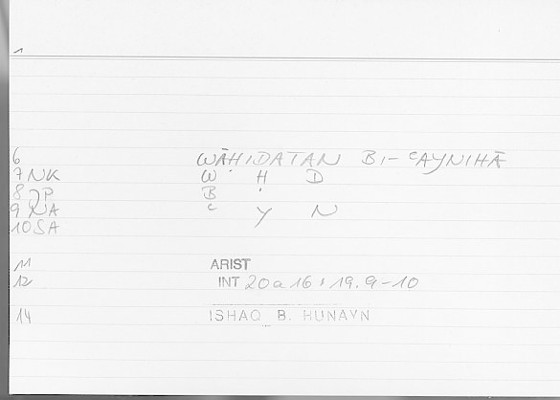 1
6 WĀḤIDATAN BI-ʿAYNIHĀ
7 NK W Ḥ D
8 JP B
9 NA ʿ Y N
10 SA
11 ARIST
12 INT 20a16 : 19.9-10
14 ISHAQ B. HUNAYN